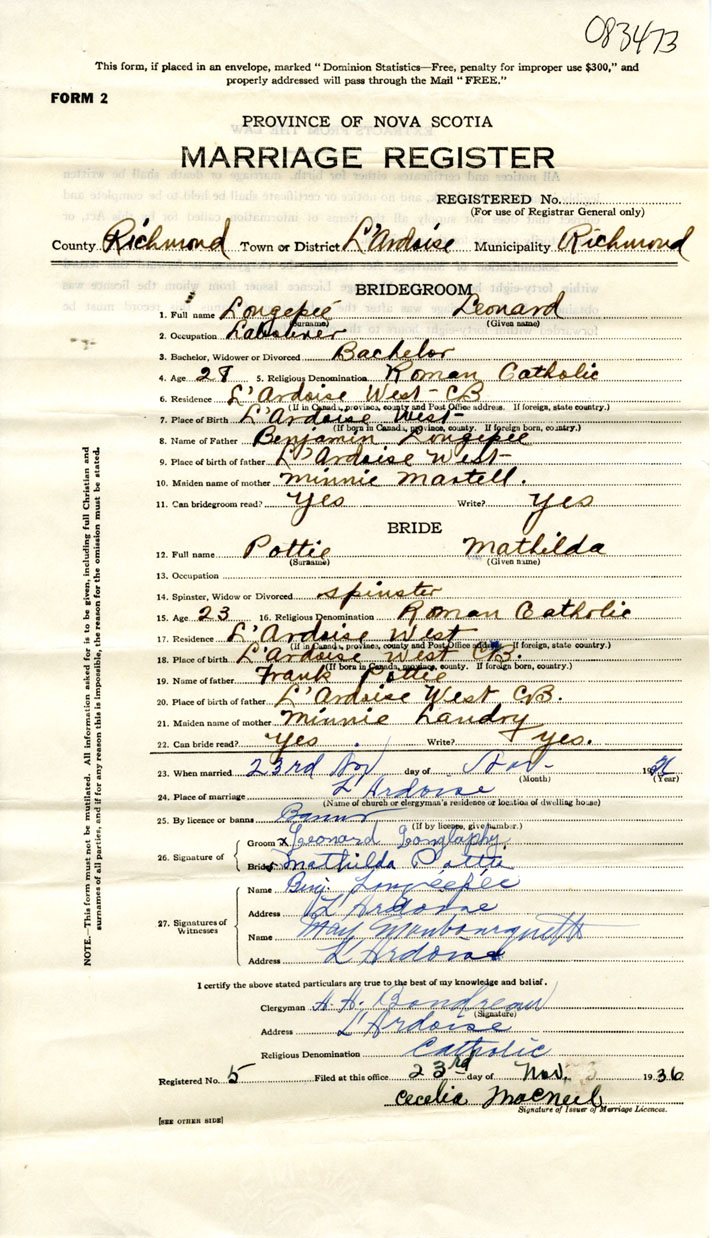 083473
This form, if placed in an envelope, marked "Dominion Statistics—Free, penalty for improper use $300," and
properly addressed will pass through the Mail "FREE."
FORM 2
PROVINCE OF NOVA SCOTIA
MARRIAGE REGISTER
REGISTERED No.
(For use of Registrar General only)
County Richmond Town or District L'Ardoise Municipality Richmond
BRIDEGROOM
1. Full name Longepié Leonard
(Surname) (Given name)
2. Occupation
3. Bachelor, Widower or Divorced Bachelor
4. Age 28 5. Religious Denomination Roman Catholic
6. Residence L'Ardoise West-CB
(If in Canada, province, county and Post Office address. If foreign, state country.)
7. Place of Birth L'Ardoise West-
(If born in Canada, province, county. If foreign born, country.)
8. Name of Father Benjamin Longepié
9. Place of birth of father L'Ardoise West-
10. Maiden name of mother Minnie Martell.
11. Can bridegroom read? Yes Write? Yes
BRIDE
12. Full name Pottie Mathilda
(Surname) (Given name)
13. Occupation
14. Spinster, Widow or Divorced spinster
15. Age 23 16. Religious Denomination Roman Catholic
17. Residence L'Ardoise West
(If in Canada, province, county and Post Office address. If foreign, state country.)
18. Place of birth L'Ardoise West CB.
(If born in Canada, province, county. If foreign born, country.)
19. Name of father Frank Pottie
20. Place of birth of father L'Ardoise West CB.
21. Maiden name of mother Minnie Landry
22. Can bride read? Yes Write? Yes.
23. When married 23rd Nov day of Nov- 19
(Month) (Year)
24. Place of marriage L'Ardoise
(Name of church or clergyman's residence or location of dwelling house)
25. By licence or banns Banns
(If by licence, give number.)
26. Signature of
Groom x Leonard Longlaphy
Bride Mathilda Pottie
27. Signatures of Witnesses
Name Benj. Longéepée
Address L'Ardoise
Name May Monbourquette
Address L'Ardoise
I certify the above stated particulars are true to the best of my knowledge and belief.
Clergyman A. A. Boudreau
(Signature)
Address L'Ardoise
Religious Denomination Catholic
Registered No. 5 Filed at this office 23rd day of Nov. 1936
Cecelia MacNeil
Signature of Issuer of Marriage Licences.
[SEE OTHER SIDE]
NOTE.—This form must not be mutilated. All information asked for is to be given, including full Christian and
surnames of all parties, and if for any reason this is impossible, the reason for the omission must be stated.